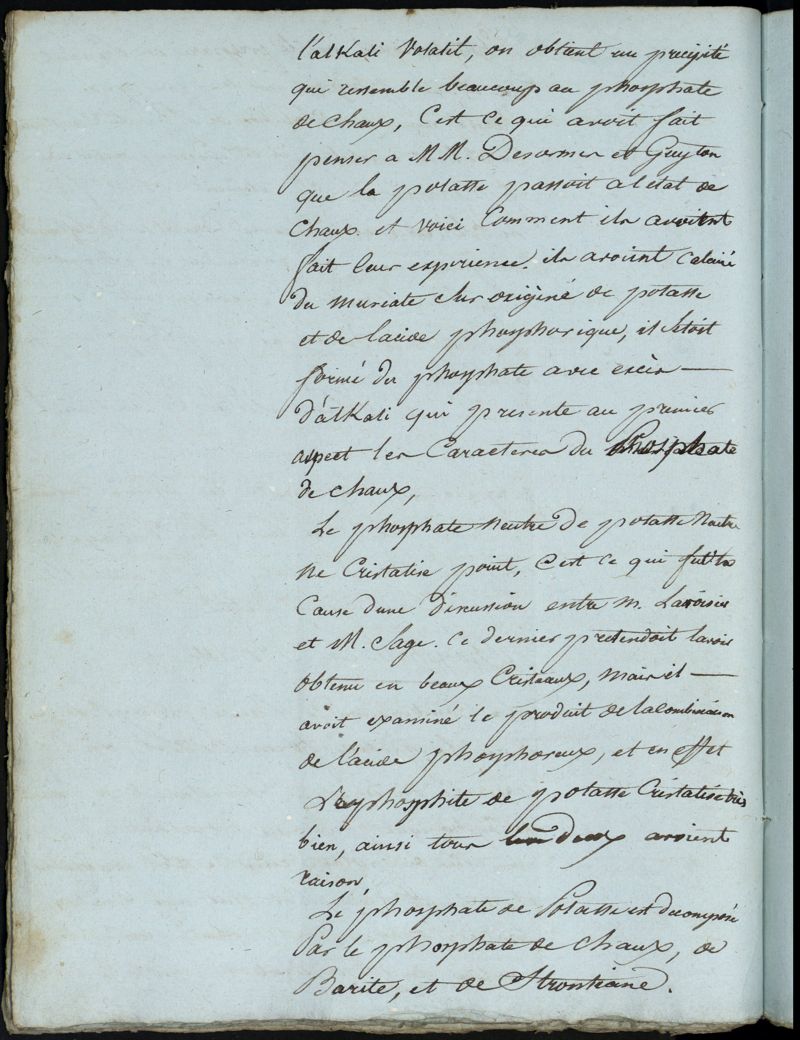 l'alKali volatil, on obtient un precipité
qui ressemble beaucoup au phosphate
de chaux, C'est ce qui avoit fait
penser a MM. Desormes et Guyton
que la potasse passoit a l'etat de
Chaux. et voici Comment ils avoient
fait leur experience. ils avoient calciné
du muriate sur de potasse
et de l'acide phosphorique, il s'etoit
formé du phosphate avec excès —
d'alKali qui presente au premier
aspect les Caracteres du Phosphate
de chaux,
Le phosphate Neutre de potasse
Ne Cristalise point, C'est ce qui fut la
Cause d'une discussion entre m. Lavoisier
et M. Sage. Ce dernier pretendoit l'avoir
obtenu en beaux Cristeaux, mais il —
avoit examiné le produit de la Combinaison
de l'acide phosphoreux, et en effet
Le phosphite de potasse Cristalise très
bien, ainsi tous les deux avoient
raison,
Le phosphate de Potasse est decomposé
Par le phosphate de Chaux, de
Barite, et de Strontiane.